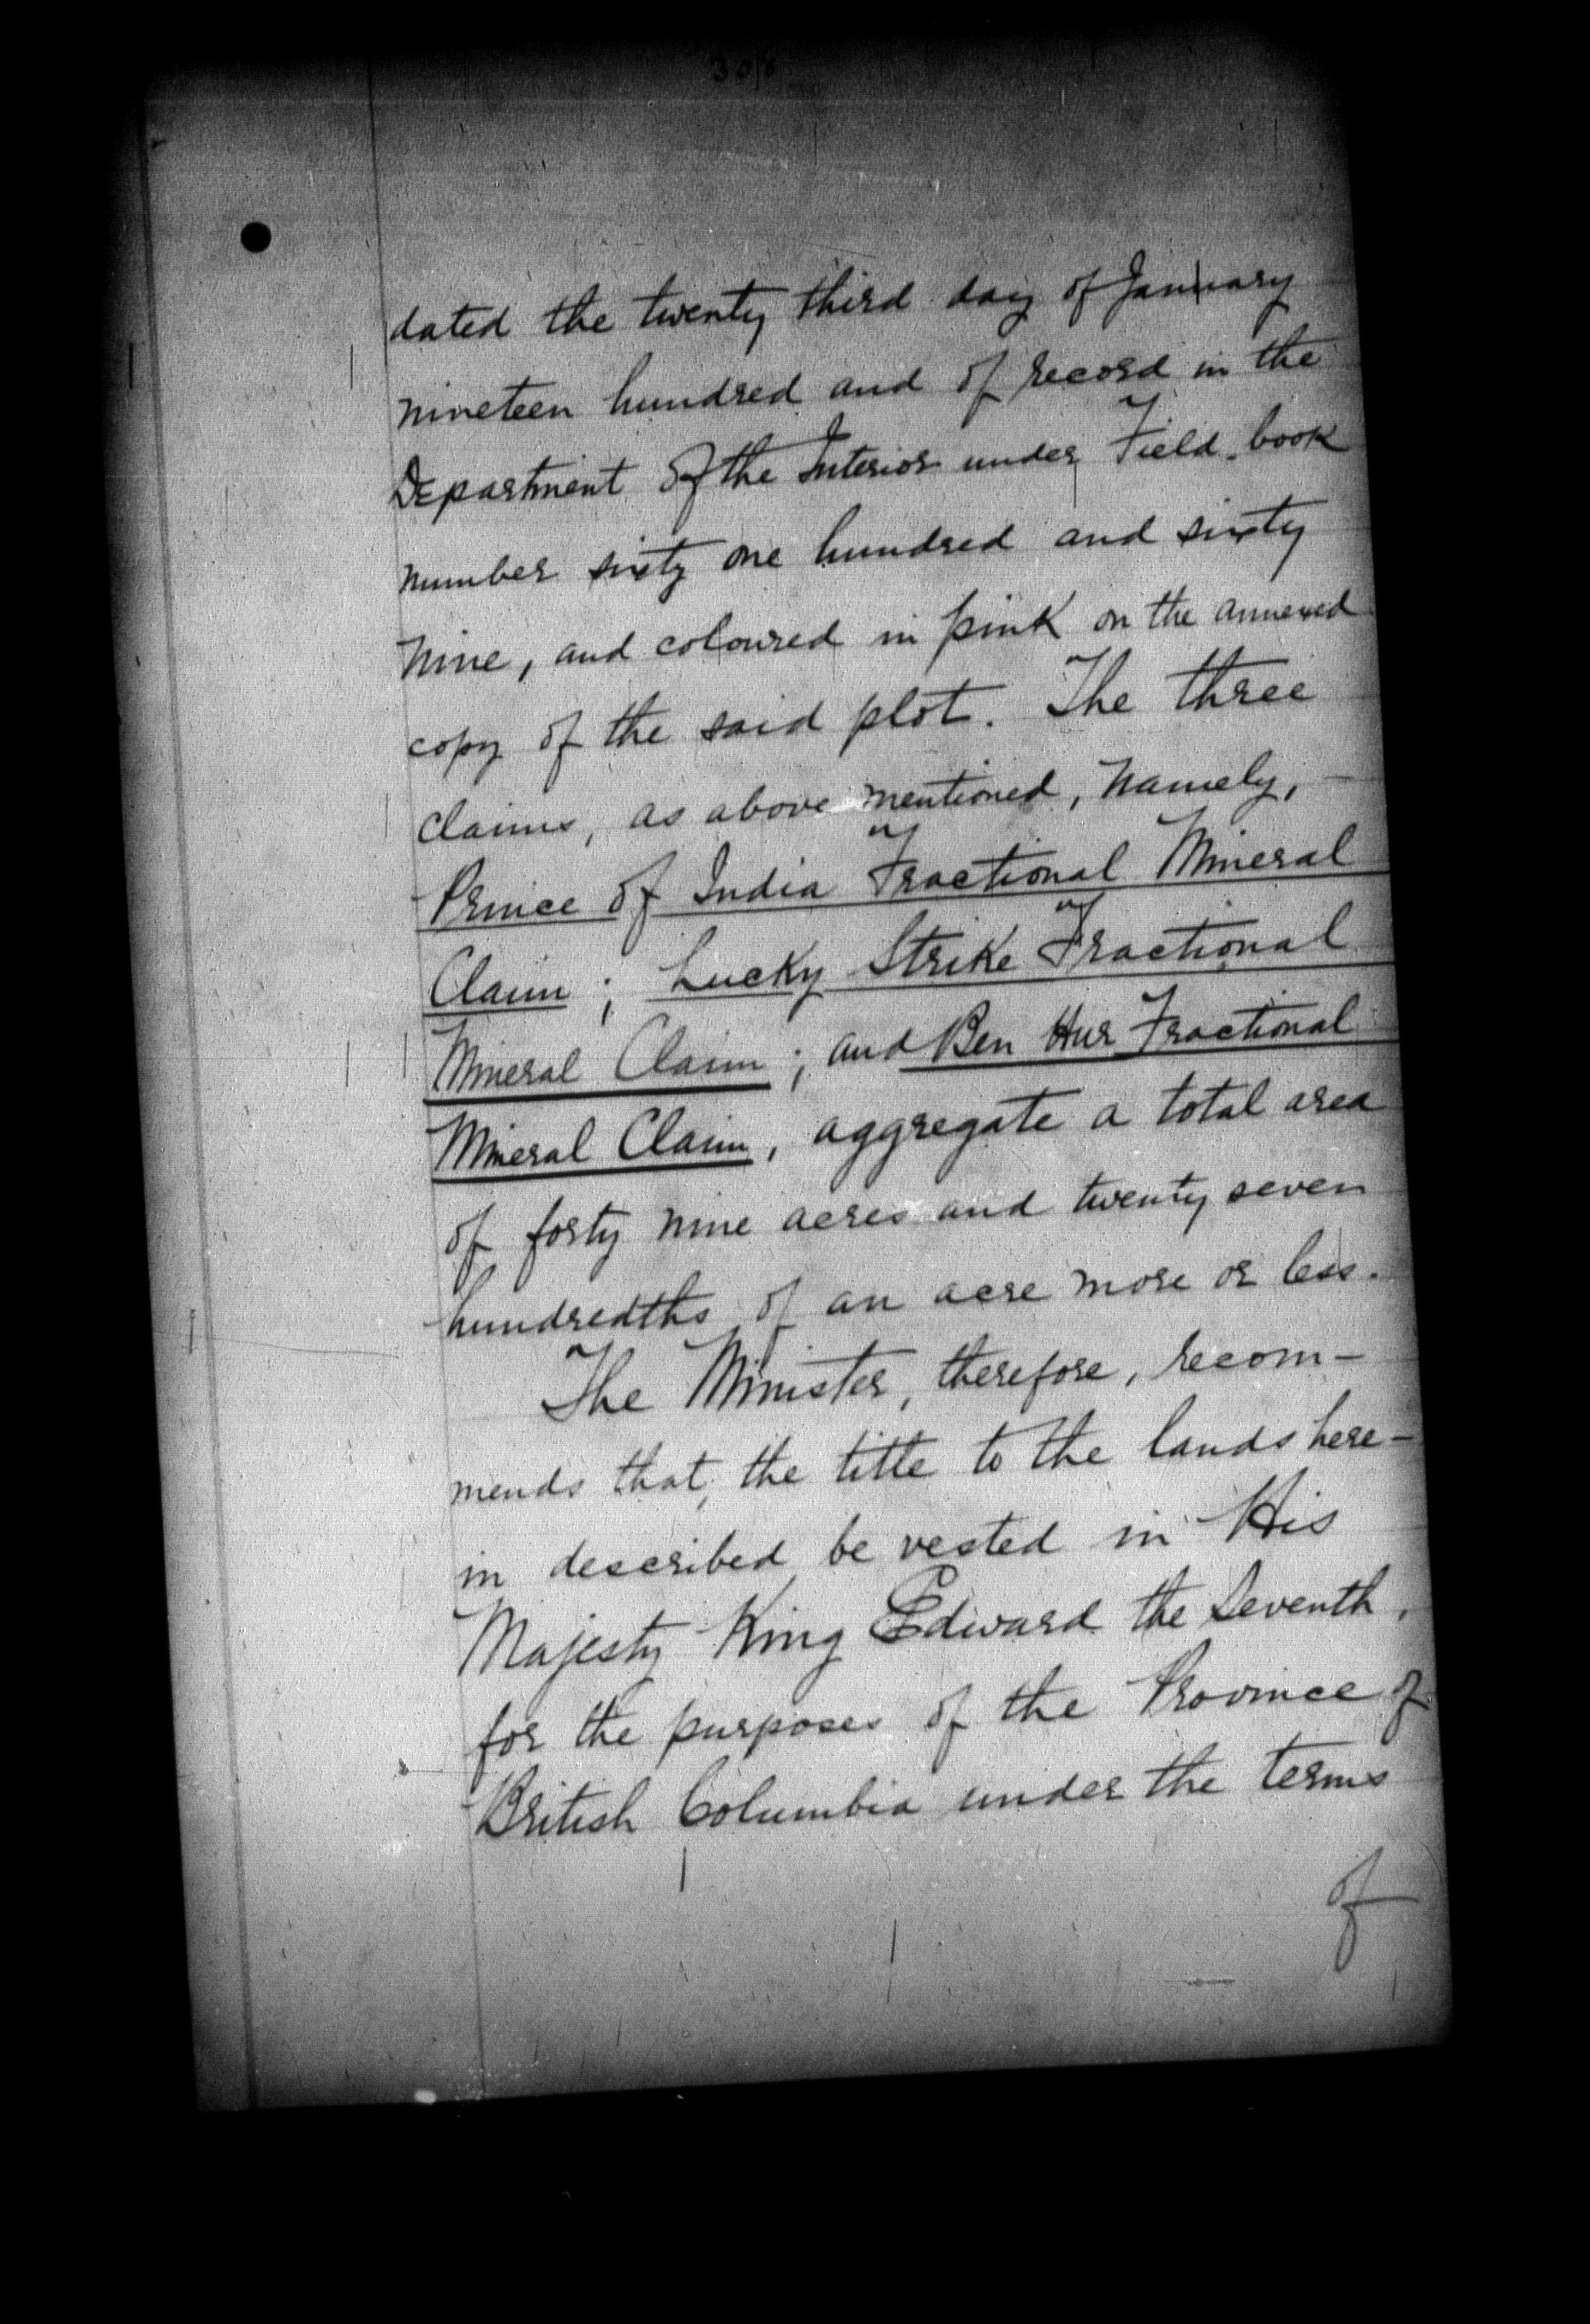 308
dated the twenty third day of January
nineteen hundred and of record in the
Department of the Interior under Field-book
number sixty one hundred and sixty
nine, and coloured in pink on the annexed
copy of the said plot. The three
claims, as above mentioned, namely, -
Prince of India Fractional Mineral
Claim; Lucky Strike Fractional
Mineral Claim; and Ben Hur Fractional
Mineral Claim, aggregate a total area
of forty nine acres and twenty seven
hundredths of an acre more or less.
The Minister, therefore, recom-
mends that, the title to the lands here-
in described, be vested in His
Majesty King Edward the Seventh,
for the purposes of the Province of
British Columbia under the terms
of